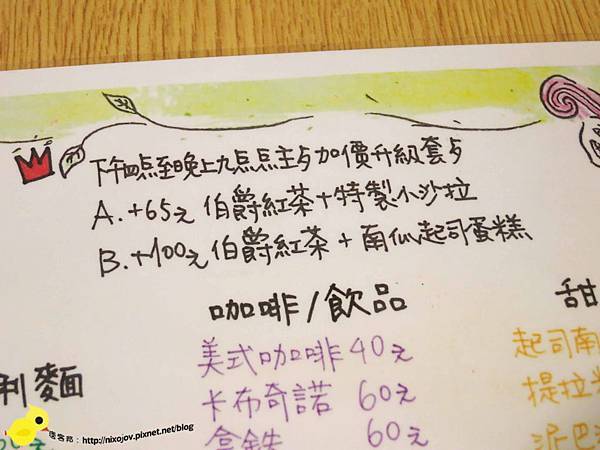 下午四点至晚上九点点主占加價升級套占
A.+65元 伯爵紅茶+特製小沙拉
B.+100元 伯爵紅茶 + 南仏起司蛋糕
咖啡/飲品
甜
美式咖啡 40元
起司南
利麵
卡布奇諾 60元
提拉米
拿鉄 60元
泥巴
痞客邦：http://nixojov.pixnet.net/blog